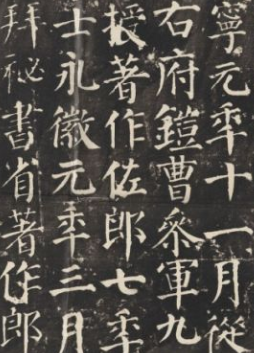 寧元秊十一月從
右府鎧曹叅軍九
授著作佐郎七秊
士永徽元秊三月
拜祕書省著作郎